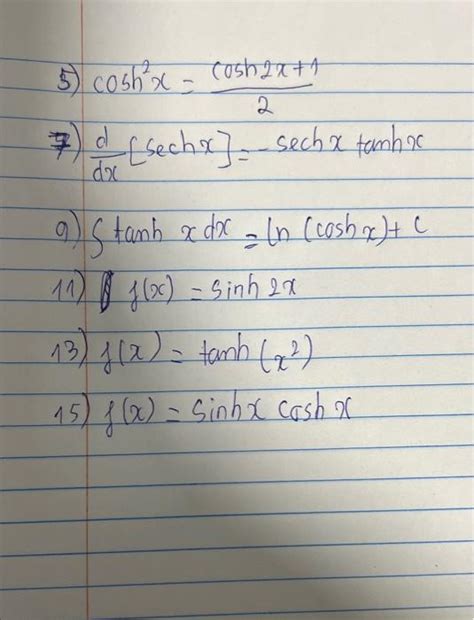 5) cosh²x = (cosh2x+1)/2
7) d/dx [sechx] = -sechx tanhx
9) ∫ tanh x dx = ln (coshx) + C
11) f(x) = sinh2x
13) f(x) = tanh(x²)
15) f(x) = sinhx coshx